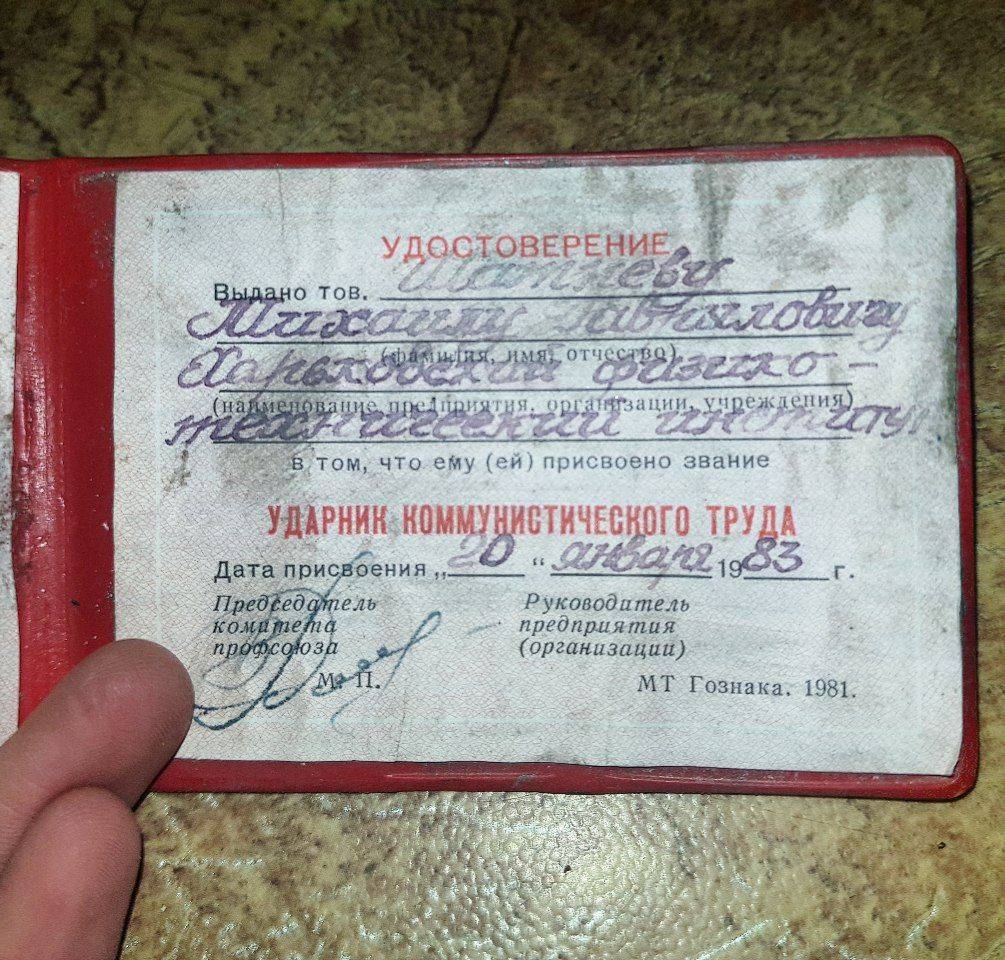 УДОСТОВЕРЕНИЕ
Выдано тов.
Михаилу Гавриловичу
(фамилия, имя, отчество)
Харьковский физико-
(наименование предприятия, организации, учреждения)
технический институт
в том, что ему (ей) присвоено звание
УДАРНИК КОММУНИСТИЧЕСКОГО ТРУДА
Дата присвоения „20“ января 1983 г.
Председатель комитета профсоюза
Руководитель предприятия (организации)
М. П.
МТ Гознака. 1981.